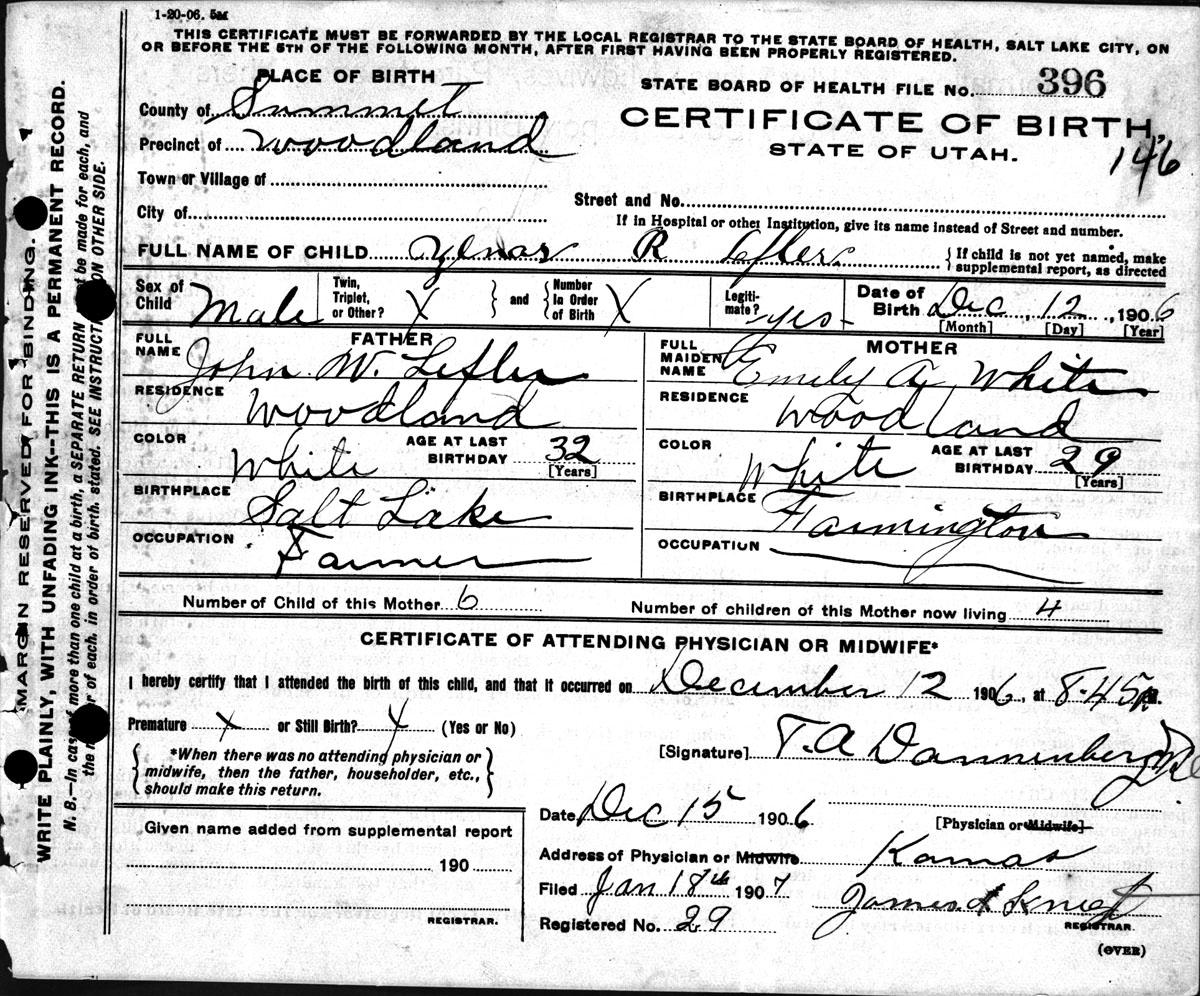 1-20-06. 5M
THIS CERTIFICATE MUST BE FORWARDED BY THE LOCAL REGISTRAR TO THE STATE BOARD OF HEALTH, SALT LAKE CITY, ON
OR BEFORE THE 5TH OF THE FOLLOWING MONTH, AFTER FIRST HAVING BEEN PROPERLY REGISTERED.
PLACE OF BIRTH
STATE BOARD OF HEALTH FILE No. 396
County of Summet
CERTIFICATE OF BIRTH,
Precinct of Woodland
STATE OF UTAH.
146
Town or Village of
Street and No.
City of
If in Hospital or other Institution, give its name instead of Street and number.
FULL NAME OF CHILD R Lefler { If child is not yet named, make
supplemental report, as directed
Sex of Child Male
Twin, Triplet, or Other? X } and { Number In Order of Birth X
Legiti- mate? yes-
Date of Birth Dec 12, 1906
[Month] [Day] [Year]
FATHER
FULL NAME John W. Lefler
RESIDENCE Woodland
COLOR White AGE AT LAST BIRTHDAY 32 [Years]
BIRTHPLACE Salt Lake
OCCUPATION Farmer
MOTHER
FULL MAIDEN NAME Emily A. White
RESIDENCE Woodland
COLOR White AGE AT LAST BIRTHDAY 29 [Years]
BIRTHPLACE Farmington
OCCUPATION
Number of Child of this Mother 6 Number of children of this Mother now living 4
CERTIFICATE OF ATTENDING PHYSICIAN OR MIDWIFE*
I hereby certify that I attended the birth of this child, and that it occurred on December 12 1906, at 8.45 M.
Premature X or Still Birth? X (Yes or No)
{ *When there was no attending physician or
midwife, then the father, householder, etc.,
should make this return. }
[Signature] T. A Dannenberg
Date Dec 15 1906
[Physician or Midwife]
Address of Physician or Midwife Kamas
Filed Jan 18th 1907
Registered No. 29
REGISTRAR.
(OVER)
Given name added from supplemental report
190
REGISTRAR.
MARGIN RESERVED FOR BINDING.
WRITE PLAINLY, WITH UNFADING INK--THIS IS A PERMANENT RECORD.
N. B.—In case of more than one child at a birth, a SEPARATE RETURN be made for each, and
the of each, in order of birth, stated. SEE INSTRUCT ON OTHER SIDE.